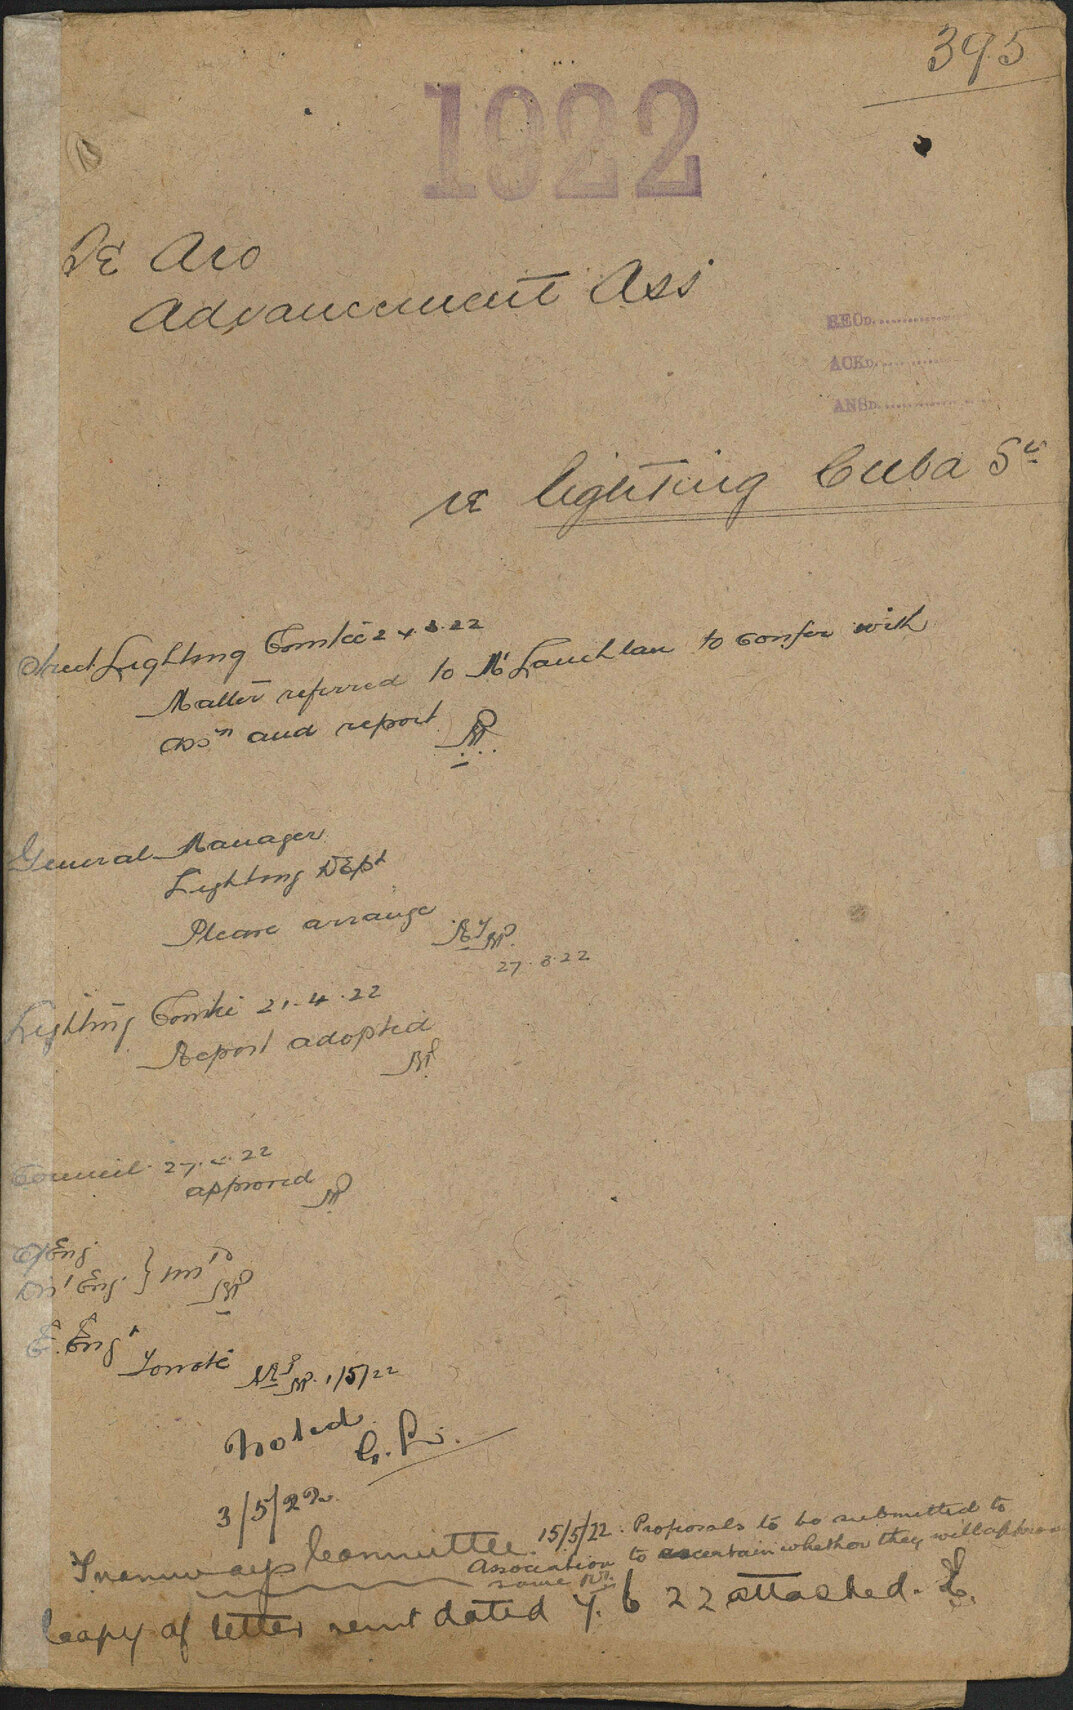 395
1922
Te Aro
Advancement Ass
RECD.
ACKD.
ANSD.
re lighting Cuba St
Street Lighting Comtee 24.3.22
Matter referred to Mr Lauchlan to confer with
Assn and report
General Manager
Lighting Dept
Please arrange
27.3.22
Lighting Comtee 21.4.22
Report adopted
Council 27.4.22
approved
Cy Eng
Eng
E. Engr
To note 1/5/22
Noted
3/5/22
Tramways Committee 15/5/22. Proposals to be submitted to
Association to ascertain whether they will approve
same
Copy of letter sent dated 7.6 22 attached.